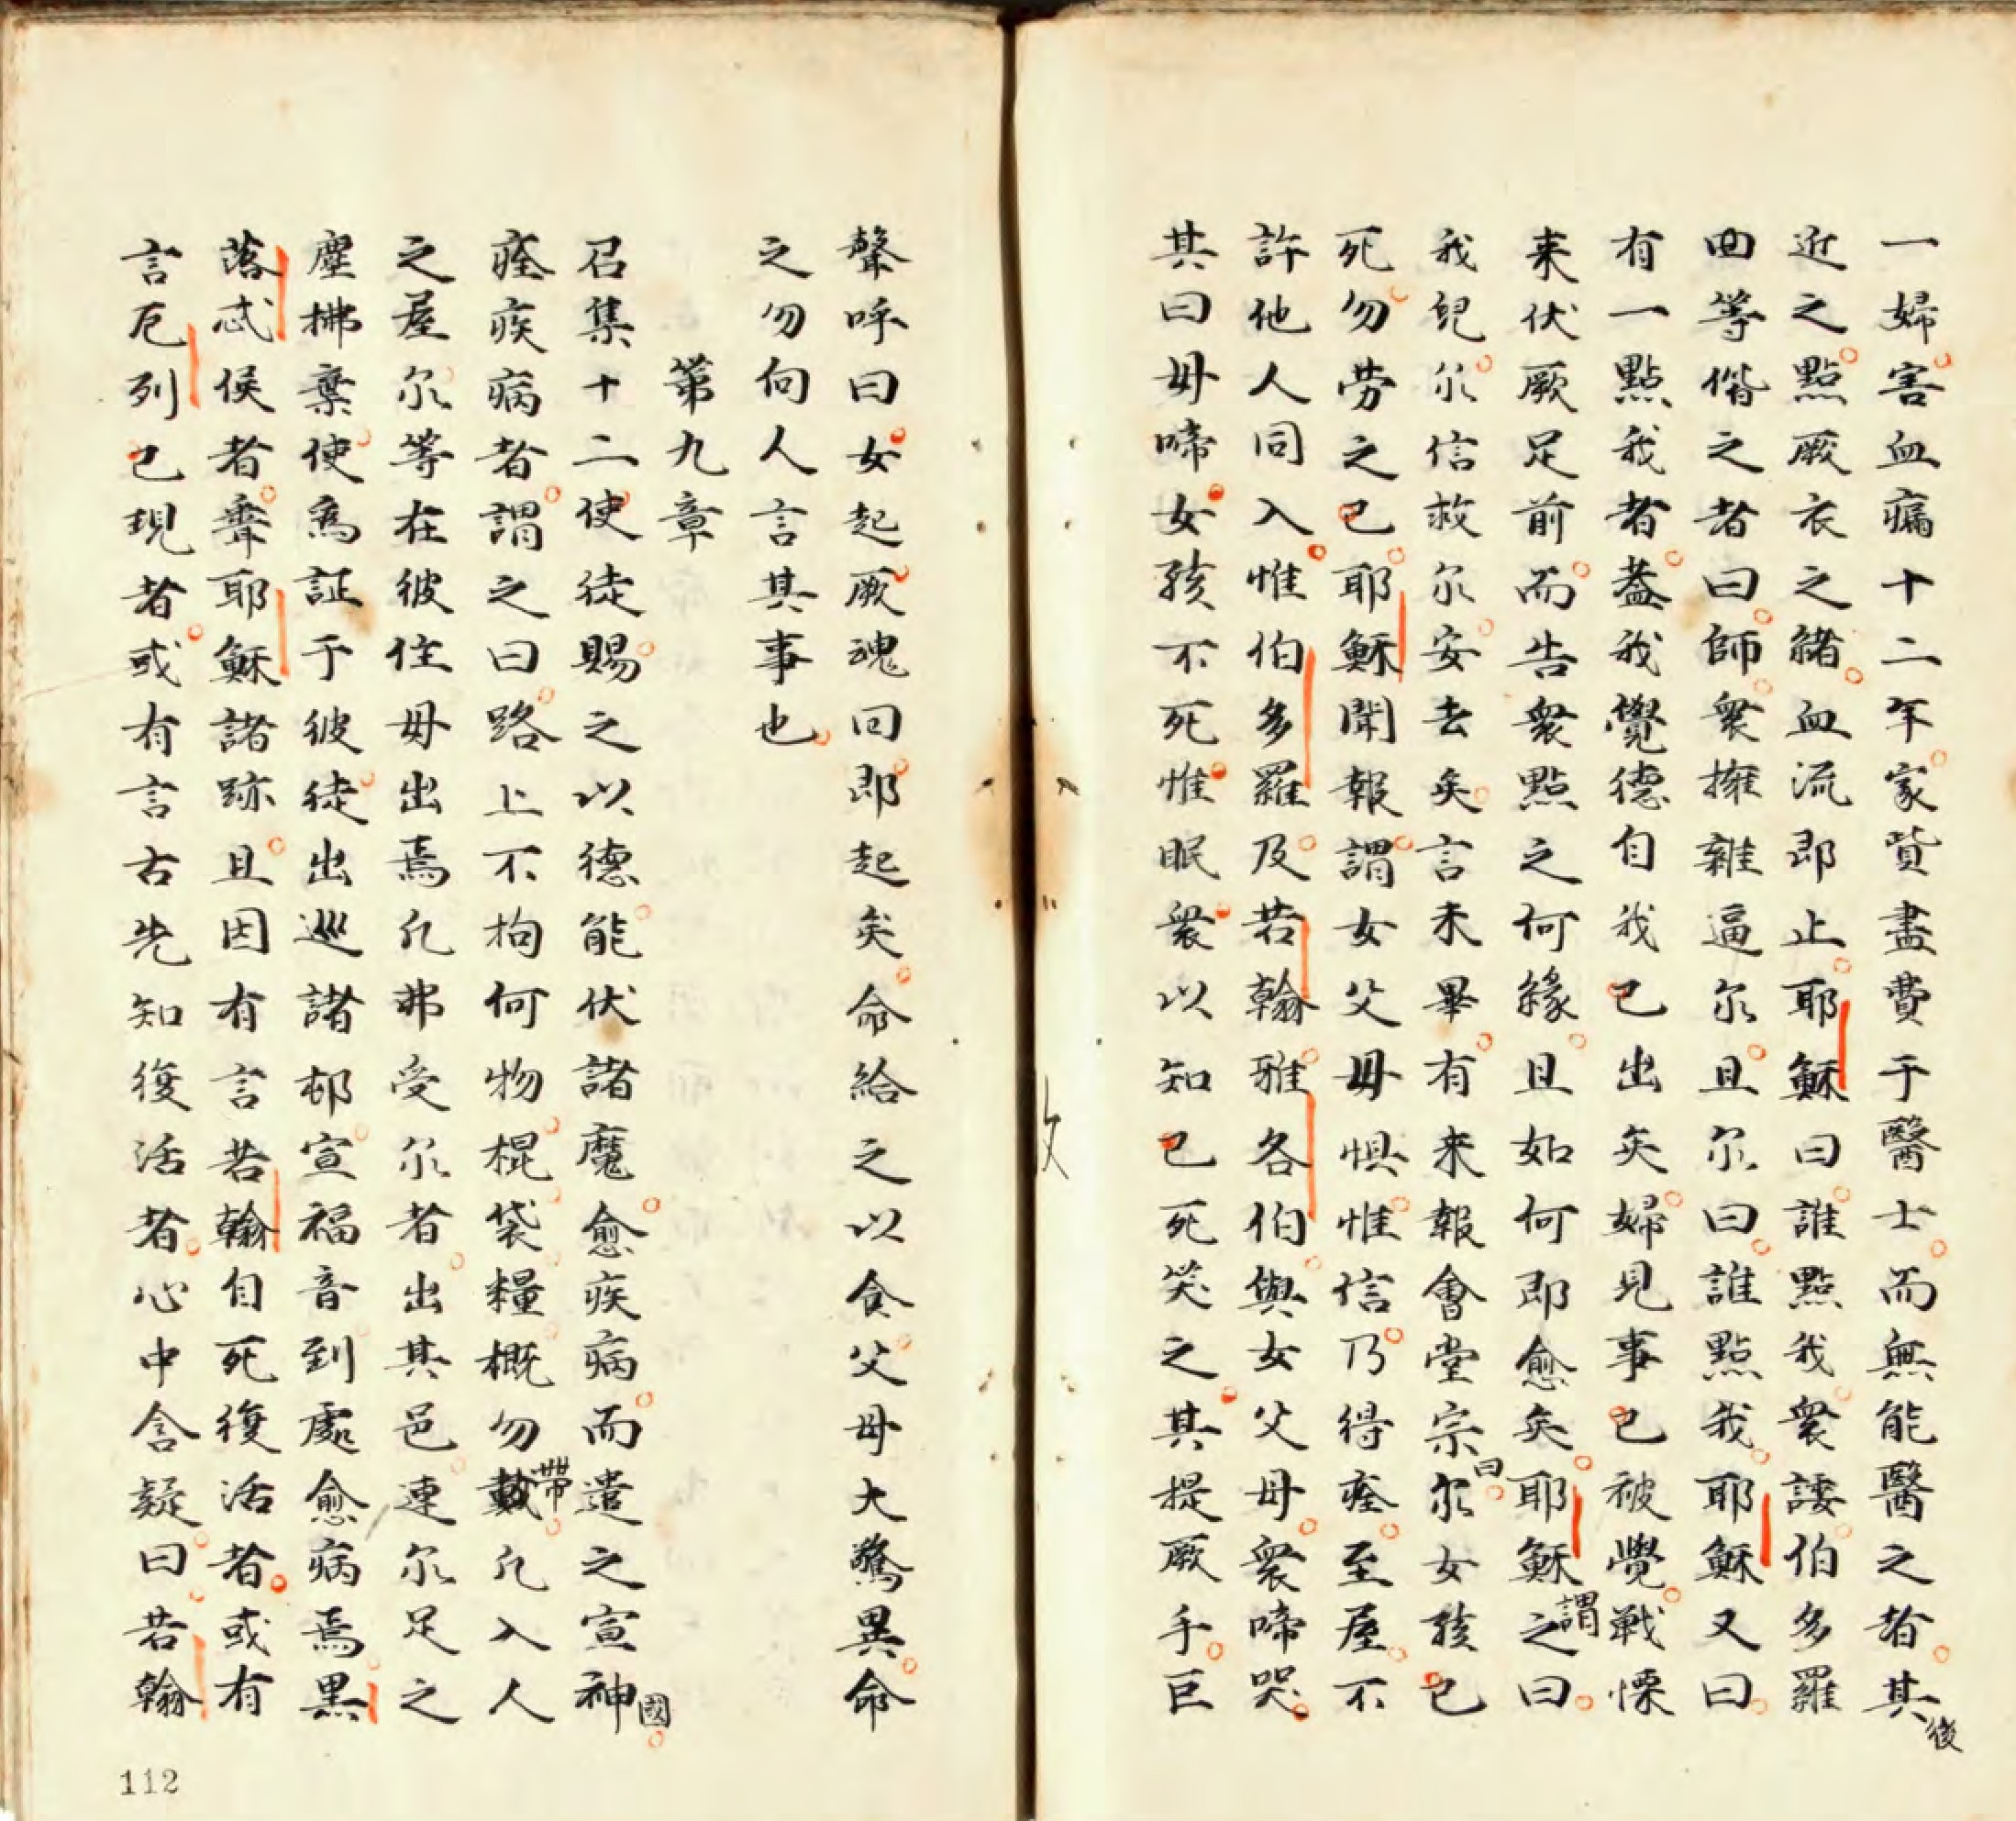 一婦害血漏十二年家貲盡費于醫士而無能醫之者其後
近之點厥衣之緒血流即止耶穌曰誰點我衆諉伯多羅
曲等偕之者曰師衆擁雜逼尔且尔曰誰點我耶穌又曰
有一點我者蓋我覺德自我已出矣婦見事已被覺戰慄
来伏厥足前而告衆點之何緣且如何即愈矣耶穌謂之曰
我兒尔信救尔安去矣言未畢有来報會堂宗曰尔女孩已
死勿劳之已耶穌聞報謂女父毋惧惟信乃得痊至屋不
許他人同入惟伯多羅及若翰雅各伯與女父母衆啼哭
其曰毋啼女孩不死惟眠衆以知已死笑之其提厥手巨
聲呼曰女起厥魂回即起矣命給之以食父母大驚異命
之勿向人言其事也
第九章
召集十二使徒賜之以德能伏諸魔愈疾病而遣之宣神國
痊疾病者謂之曰路上不拘何物棍袋糧概勿戴帶凢入人
之屋尔等在彼住毋出焉凢弗受尔者出其邑連尔足之
塵拂棄使爲証于彼徒出巡諸邨宣福音到處愈病焉黑
落忒侯者聋耶穌諸跡且因有言若翰自死復活者或有
言厄列已現者或有言古先知復活者心中含疑曰若翰
112